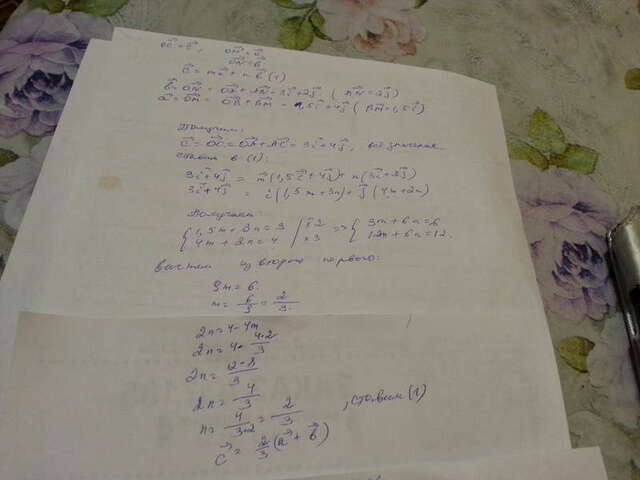 OC = c, OM = a,
ON = b
c⃗ = ma⃗ + n b⃗ (1)
b⃗ = ON⃗ = OA⃗ + AN⃗ = 3i⃗ + 2j⃗ ( AN⃗ = 2j⃗ )
a⃗ = OM⃗ = OB⃗ + BM⃗ = 1,5i⃗ + 4j⃗ ( BM⃗ = 1,5i⃗ )
Получим:
c⃗ = OC⃗ = OA⃗ + AC⃗ = 3i⃗ + 4j⃗, все значения
ставим в (1):
3i⃗ + 4j⃗ = m⃗(1,5i⃗ + 4j⃗) + n(3i⃗ + 2j⃗)
3i⃗ + 4j⃗ = i⃗(1,5m + 3n) + j⃗(4m + 2n)
Получаем:
{ 1,5m + 3n = 3 | ×2 => { 3m + 6n = 6
4m + 2n = 4 | ×3 12m + 6n = 12.
вычтем из второго первого:
9m = 6.
m = 6/9 = 2/3.
2n = 4 - 4m
2n = 4 - 4·2/3
2n = 12-8/3
2n = 4/3
n = 4/3·2 = 2/3, ставим (1)
c⃗ = 2/3 (a⃗ + b⃗)